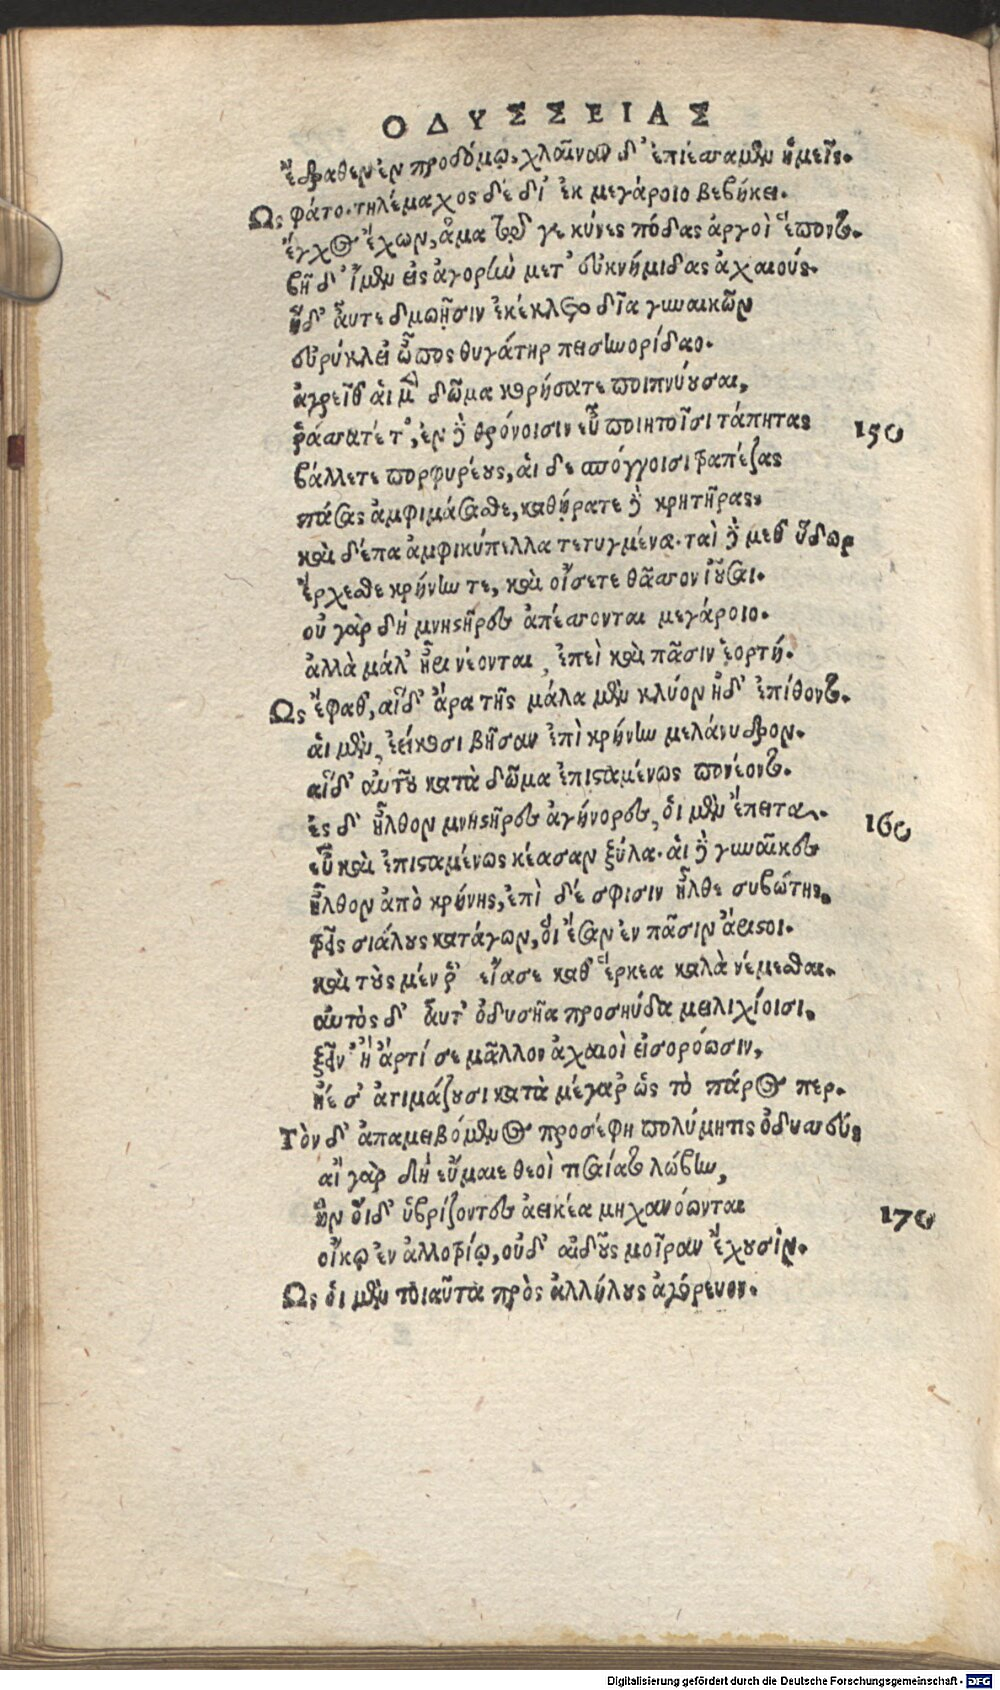 ΟΔΥΣΣΕΙΑΣ
ἔδραθεν ἐν προδόμῳ. χλαῖναν δ' ἐπιέσσαμεν ἡμεῖς.
Ως φάτο. τηλέμαχος δὲ δι' ἐκ μεγάροιο βεβήκει.
ἔγχος ἔχων, ἅμα τῷ γε κύνες πόδας ἀργοὶ ἕποντο.
βῆ δ' ἴμεν εἰς ἀγορὴν μετ' εὐκνήμιδας ἀχαιούς.
ἡδ' αὖτε δμωῇσιν ἐκέκλετο δῖα γυναικῶν
εὐρύκλει' ὦπος θυγάτηρ πεισηνορίδαο.
ἀγρεῖθ' αἱ μὲν δῶμα κορήσατε ποιπνύουσαι,
ῥάσσατέ τ', ἐν δὲ θρόνοισιν εὖ ποιητοῖσι τάπητας 150
βάλλετε πορφυρέους, αἱ δὲ σπόγγοισι τραπέζας
πάσας ἀμφιμάσασθε, καθήρατε δὲ κρητῆρας,
καὶ δέπα ἀμφικύπελλα τετυγμένα. ταὶ δὲ μεθ' ὕδωρ
ἔρχεσθε κρήνην τε, καὶ οἴσετε θᾶσσον ἰοῦσαι.
οὐ γὰρ δὴ μνηστῆρες ἀπέσσονται μεγάροιο.
ἀλλὰ μάλ' ἦρι νέονται, ἐπεὶ καὶ πᾶσιν ἑορτή.
Ως ἔφαθ', αἵδ' ἄρα τῆς μάλα μὲν κλύον ἠδ' ἐπίθοντο.
αἱ μὲν, ἐείκοσι βῆσαν ἐπὶ κρήνην μελάνυδρον.
αἵδ' αὐτοῦ κατὰ δῶμα ἐπισταμένως πονέοντο.
ἐς δ' ἦλθον μνηστῆρες ἀγήνορες, οἱ μὲν ἔπειτα 160
εὖ καὶ ἐπισταμένως κέασαν ξύλα. αἱ δὲ γυναῖκες
ἦλθον ἀπὸ κρήνης, ἐπὶ δέ σφισιν ἦλθε συβώτης,
τρεῖς σιάλους κατάγων, οἳ ἔσαν ἐν πᾶσιν ἄριστοι.
καὶ τοὺς μέν ῥ' εἴασε καθ' ἕρκεα καλὰ νέμεσθαι.
αὐτὸς δ' αὖτ' ὀδυσῆα προσηύδα μειλιχίοισι,
ξεῖν' ἢ ἄρτί σε μᾶλλον ἀχαιοὶ εἰσορόωσιν,
ἠέ σ' ἀτιμάζουσι κατὰ μέγαρ' ὡς τὸ πάρος περ.
Τὸν δ' ἀπαμειβόμενος προσέφη πολύμητις ὀδυσσεύς
αἲ γὰρ δὴ εὔμαιε θεοὶ τισαίατο λώβην,
ἣν οἵδ' ὑβρίζοντες ἀεικέα μηχανόωνται 170
οἴκῳ ἐν ἀλλοτρίῳ, οὐδ' αἰδοῦς μοῖραν ἔχουσιν.
Ως οἱ μὲν τοιαῦτα πρὸς ἀλλήλους ἀγόρευον.
Digitalisierung gefördert durch die Deutsche Forschungsgemeinschaft - DFG